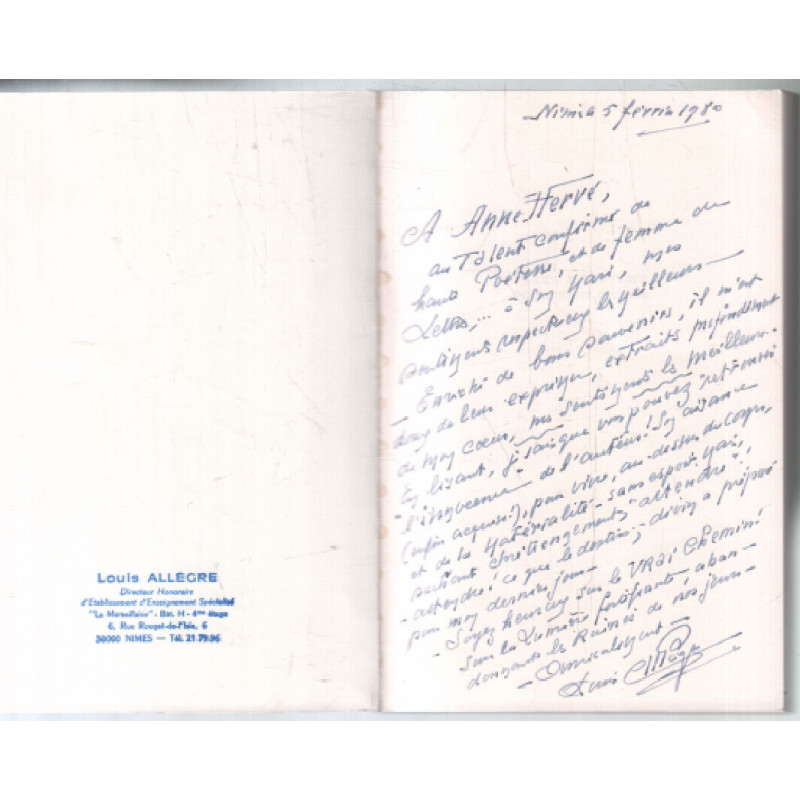 Louis ALLÈGRE
Directeur Honoraire
d'Etablissement d'Enseignement Spécialisé
"La Marseillaise" - Bat. H - 4me étage
6, Rue Rouget-de-l'Isle, 6
30000 NIMES — Tél. 21.79.96
5 février 1980
A Anne Hervé,
au Talent confirmé de
haute Poétesse, et de femme de
Lettres,... à son mari, mes
sentiments respectueux les meilleurs —
— Enrichi de bons souvenirs, il m'est
doux de leur exprimer, extraits profondément
de mon cœur, mes sentiments les meilleurs.
En lisant, je sais que vous pouvez retrouver
l'innocence de l'auteur! Son aisance
(enfin acquise!), pour vivre, au-dessus du corps,
et de la matérialité - sans espoir mais,
sachant chrétiennement "attendre",
— attendre! ce que le destin, divin a préparé
pour mon dernier jour —
— Soyez heureux sur le VRAI Chemin!
sous la Lumière fortifiante aban-
donnants les Ruines de nos jours —
— Amicalement —
Louis Allègre